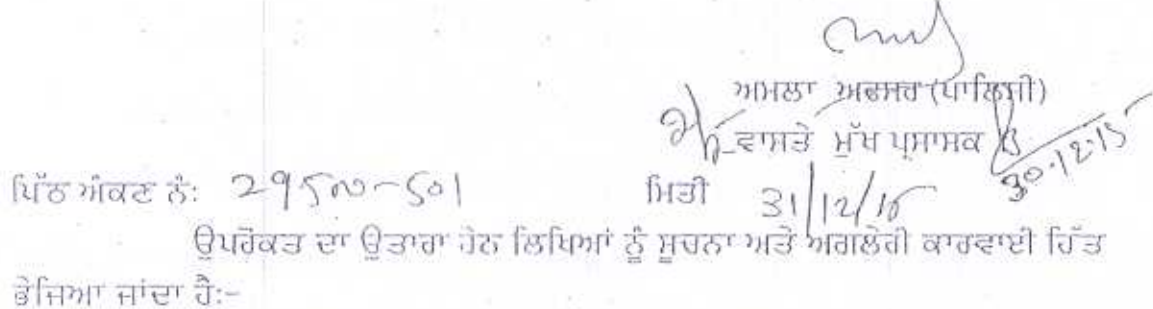 ਅਮਲਾ ਅਫਸਰ (ਪਾਲਿਸੀ)
ਵਾਸਤੇ ਮੁੱਖ ਪ੍ਰਸਾਸਕ
30.12.15
ਪਿੱਠ ਅੰਕਣ ਨੰ: 29500-501 ਮਿਤੀ 31/12/15
ਉਪਰੋਕਤ ਦਾ ਉਤਾਰਾ ਹੇਠ ਲਿਖਿਆਂ ਨੂੰ ਸੂਚਨਾ ਅਤੇ ਅਗਲੇਰੀ ਕਾਰਵਾਈ ਹਿੱਤ
ਭੇਜਿਆ ਜਾਂਦਾ ਹੈ:-